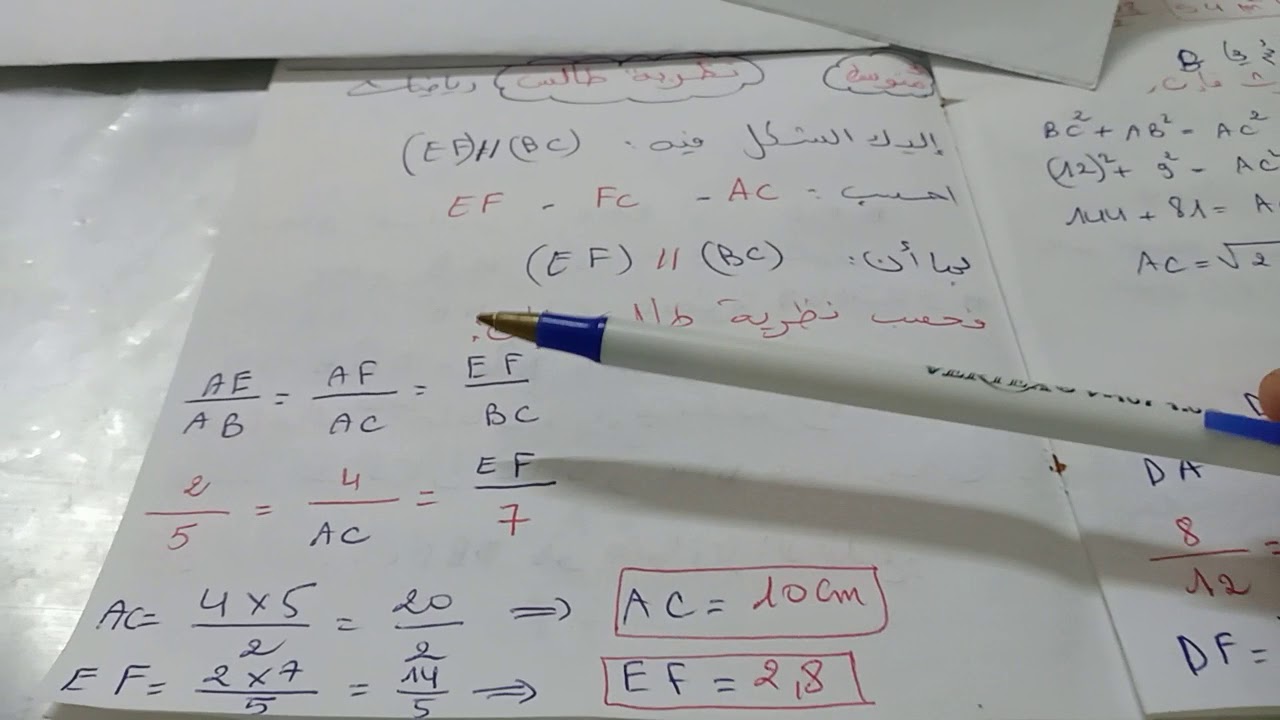 نظرية طالس رياضيات
إليك الشكل فيه: (EF)//(BC)
احسب: EF - FC - AC
بما أن: (EF) // (BC)
فحسب نظرية طالس
AE/AB = AF/AC = EF/BC
2/5 = 4/AC = EF/7
AC = 4×5/2 = 20/2 ⇒ AC = 10 cm
EF = 2×7/5 = 14/5 ⇒ EF = 2,8
BC² + AB² = AC²
(12)² + 9² = AC²
144 + 81 = A
AC = √2
DA
8/12 =
DF =